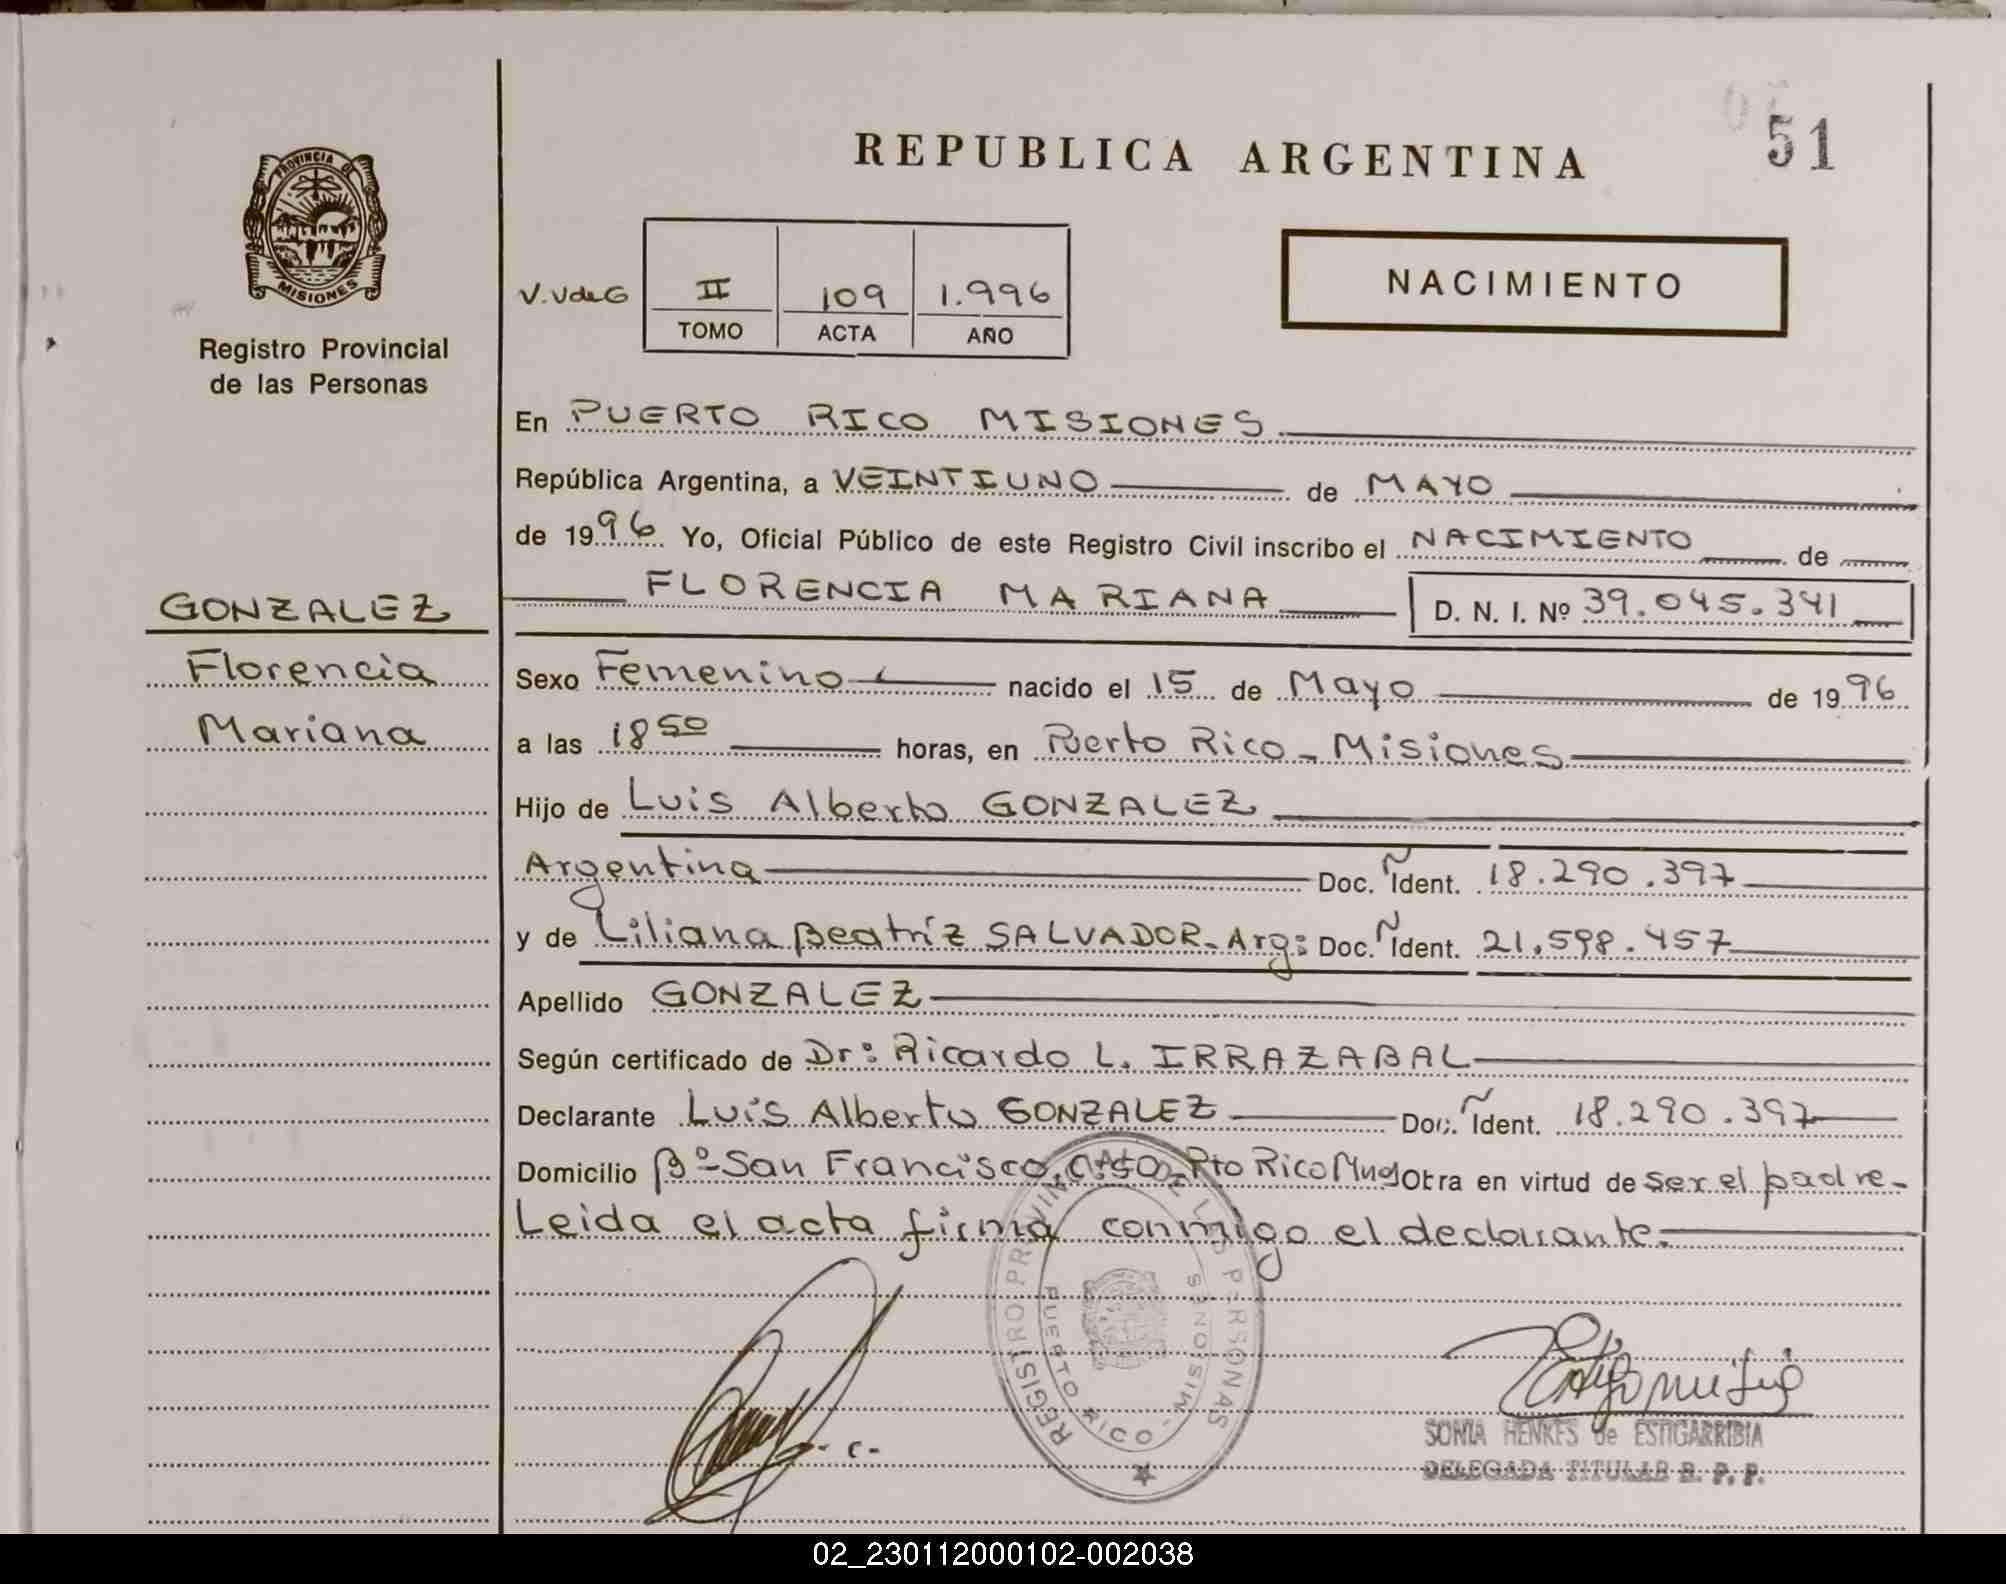 REPUBLICA ARGENTINA
51
PROVINCIA DE
MISIONES
Registro Provincial
de las Personas
V.VdeG
II 109 1.996
TOMO ACTA AÑO
NACIMIENTO
En PUERTO RICO MISIONES
República Argentina, a VEINTIUNO de MAYO
de 1996 Yo, Oficial Público de este Registro Civil inscribo el NACIMIENTO de
FLORENCIA MARIANA D. N. I. Nº 39.045.341
GONZALEZ
Florencia
Mariana
Sexo Femenino nacido el 15 de Mayo de 1996
a las 18 50 horas, en Puerto Rico - Misiones
Hijo de Luis Alberto GONZALEZ
Argentina Doc. Ident. 18.290.397
y de Liliana Beatríz SALVADOR - Arg: Doc. Ident. 21.598.457
Apellido GONZALEZ
Según certificado de Dr: Ricardo L. IRRAZABAL
Declarante Luis Alberto GONZALEZ Doc. Ident. 18.290.397
Domicilio Bº San Francisco Pto Rico Mnes Obra en virtud de ser el padre-
Leida el acta firma conmigo el declarante.
REGISTRO PROVINCIAL DE LAS PERSONAS
PUERTO RICO - MISIONES
- c -
SONIA HENKES de ESTIGARRIBIA
DELEGADA TITULAR R. P. P.
02_230112000102-002038